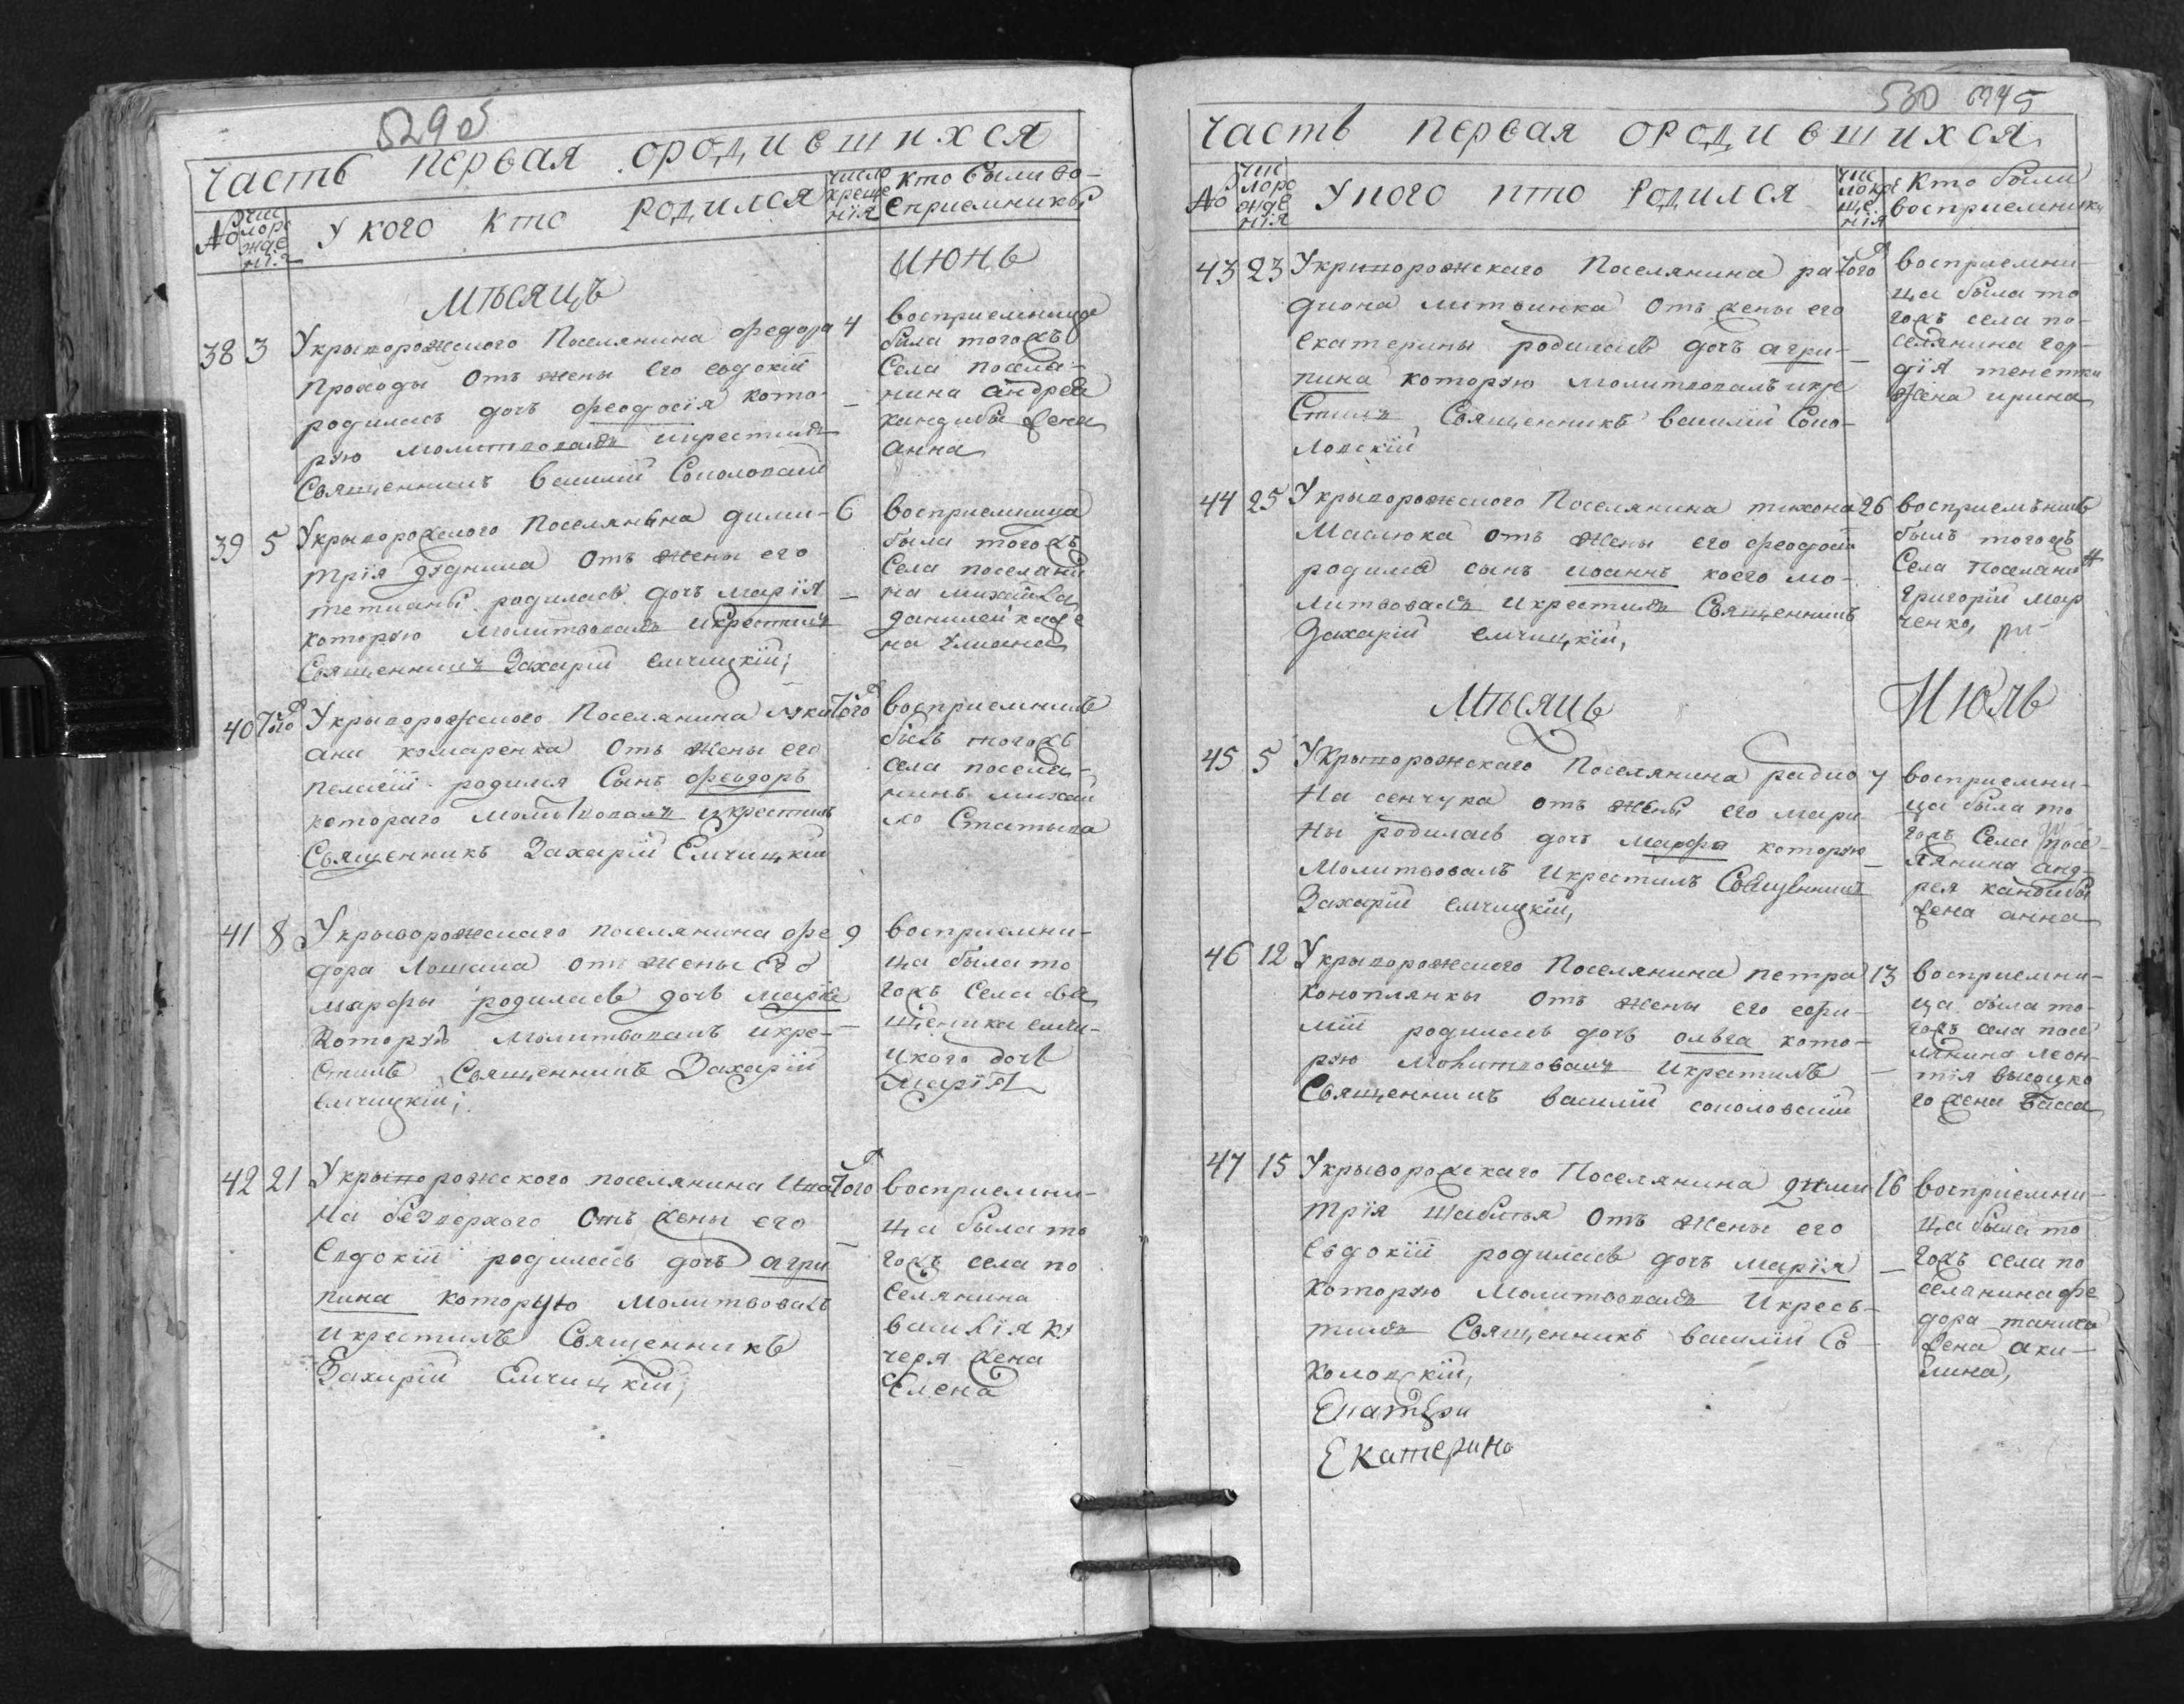 529 об
часть первая ородившихся
№
чис
лоро
жде
нія
У кого кто родился
число
креще
нія
кто были во-
сприемники
мѣсяцъ
июнь
38 3 Укрыворожского Поселянина федора 4
проходы отъ жены его евдокіи
родилась дочь феодосія кото-
рую молитвовалъ икрестилъ
Священникъ василій Соколовскій
восприемница
была тогожъ
села посели-
нина андрея
кандибы жена
анна
39 5 Укрыворожского Поселянина дими- 6
трія дудника отъ жены его
тетианы родилась дочь марія
которую молитвовалъ икрестилъ
Священникъ Захарій емчицкій,
восприемница
была тогожъ
села поселани
на михайла
данилейка же
на улиана
40 7го Укрыворожского Поселянина луки того
ани комаренка отъ жены его
пелагіи родился Сынъ феодоръ
котораго молитвовалъ икрестилъ
Священникъ Захарій Емчицкій
восприемникъ
былъ тогожъ
села посели-
нинъ михай
ло Статыва
41 8 Укрыворожскаго поселянина фе 9
дора лошака отъ жены его
марфы родилась дочь марія
которую молитвовалъ икре-
стилъ Священникъ Захарій
емчицкій,
восприемни-
ца была то
гожъ села свя
щеника емчи-
цкого дочь
марія
42 21 Укрыворожского поселянина ива того
на безверхого отъ жены его
Евдокіи родилась дочь агри
пина которую молитвовалъ
икрестилъ Священникъ
Захарій Емчицкій,
восприемни-
ца была то
гожъ села по
селянина
василія ку
черя жена
Елена
530
часть первая ородившихся
№
чис
лоро
жде
нія
Укого кто родился
чис
локре
ще
нія
кто были
восприемники
43 23 Укрыворожскаго Поселянина ра того
диона литвинка отъ жены его
екатерины родилась дочь агри-
пина которую молитвовалъ икре
стилъ Священникъ василій Соко-
ловскій
восприемни-
ца была то
гожъ села по-
селянина гор-
дія тенетки
жена ирина
44 25 Укрыворожского Поселянина тихона 26
Маслюка отъ жены его феодосіи
родился сынъ иоаннъ коего мо-
литвовалъ икрестилъ Священникъ
Захарій емчицкій,
восприемникъ
былъ тогожъ
села Поселанин
григорій мар
ченко,
Мѣсяцъ
Июль
45 5 Укрыворожскаго Поселянина радио 7
на сенчука отъ жены его мари
ны родилась дочь марфа которую
молитвовалъ икрестилъ Священникъ
Захарій емчицкій,
восприемни-
ца была то
гожъ села посе-
лянина анд-
рея кандибы
жена анна
46 12 Укрыворожского Поселянина петра 13
коноплянки отъ жены его ефи-
міи родилась дочь ольга кото-
рую молитвовалъ икрестилъ
Священникъ василій соколовскій
восприемни-
ца была то-
гожъ села посе
лянина леон-
тія высоцко
го жена васса
47 15 Укрыворожскаго Поселянина дими 16
трія шабльтя отъ жены его
евдокіи родилась дочь марія
которую молитвовалъ икрес-
тилъ Священникъ василій Со-
коловскій,
восприемни-
ца была то
гожъ села по
селанина фе
дора танцю
жена аки-
лина,
Екатери
Екатерина